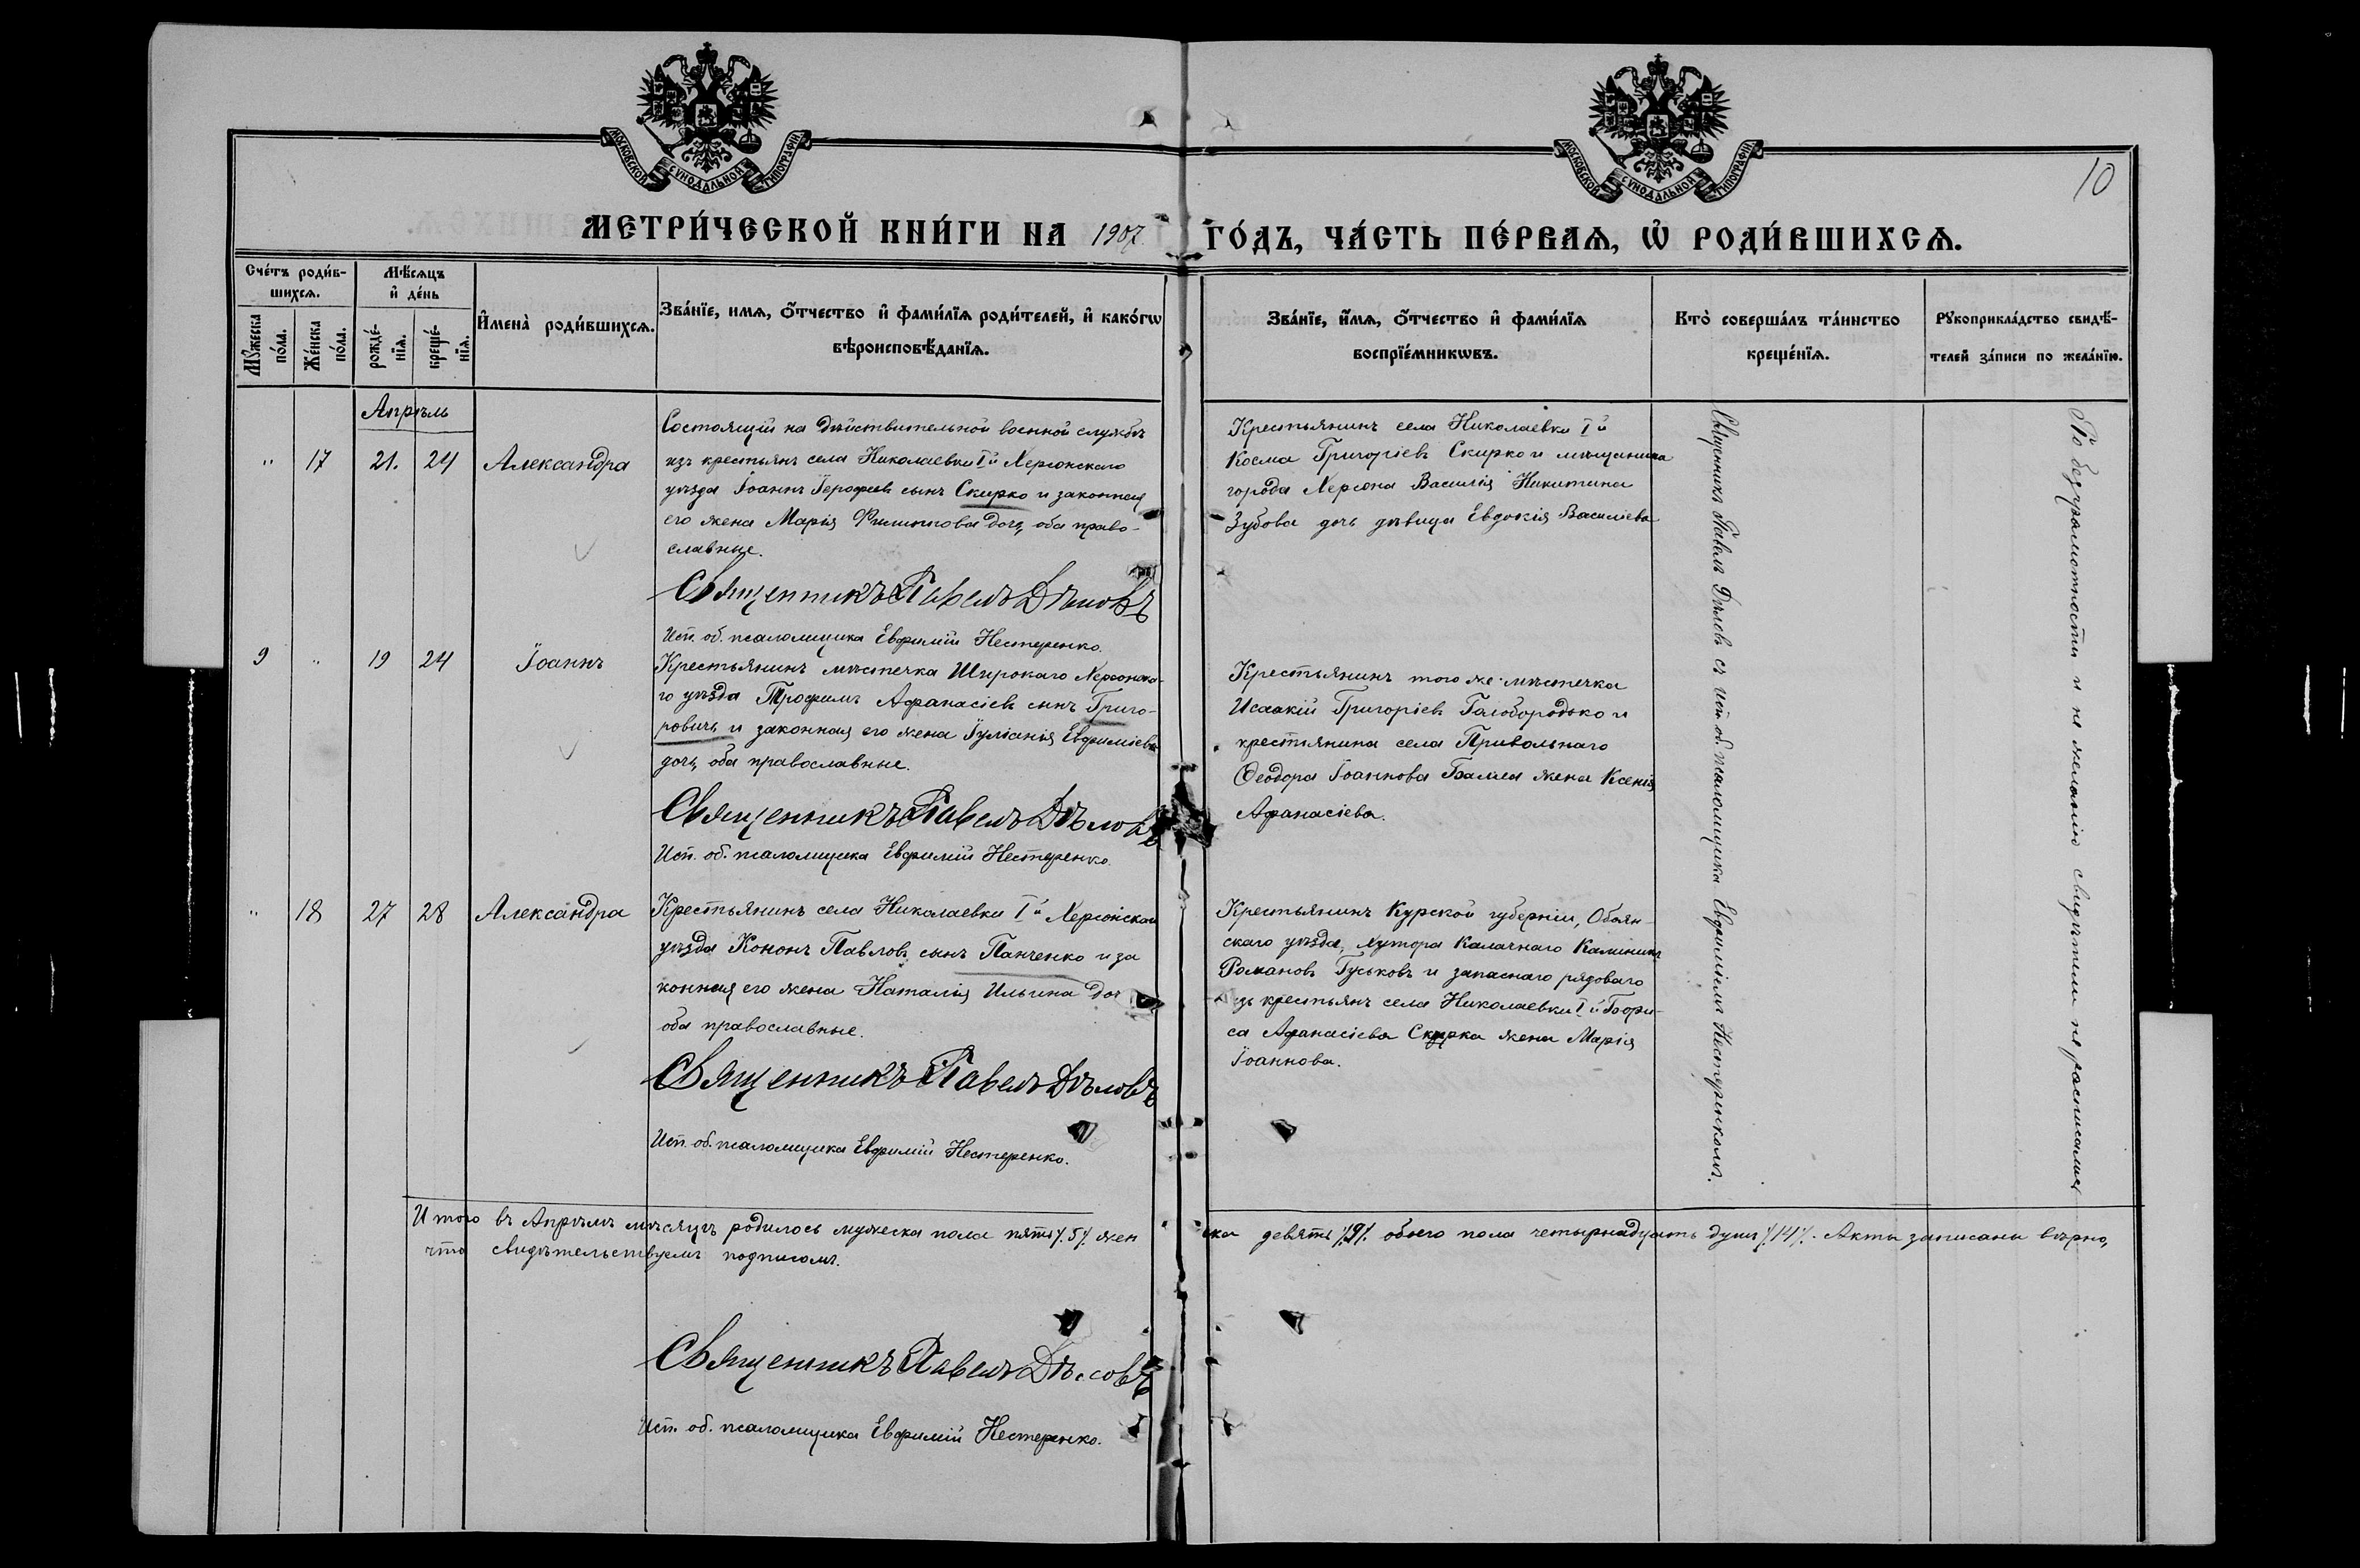 МОСКОВСКОЙ СѴНОДАЛЬНОЙ ТИПОГРАФІИ
МОСКОВСКОЙ СѴНОДАЛЬНОЙ ТИПОГРАФІИ
10
МЕТРИ́ЧЕСКОЙ КНИ́ГИ НА 1907 ГО́ДЪ, ЧА́СТЬ ПЕ́РВАѦ, Ѡ҆ РОДИ́ВШИХСѦ.
Сче́тъ роди́в-
шихсѧ.
Мꙋ́жеска
по́ла.
Же́нска
по́ла.
Мѣ́сѧцъ
и҆ де́нь
рожде́-
нїѧ.
креще́-
нїѧ.
И҆мена̀ роди́вшихсѧ.
Зва́нїе, имѧ, ѻ҆́тчество и҆ фами́лїѧ роди́телей, и҆ како́гѡ
вѣроисповѣ́данїѧ.
Зва́нїе, и҆́мѧ, ѻ҆́тчество и҆ фами́лїѧ
воспрїе́мникѡвъ.
Кто̀ соверша́лъ та́инство
креще́нїѧ.
Рꙋкоприкла́дство свидѣ́-
телей за́писи по жела́нїю.
Апрѣль
" 17 21. 24 Александра
Состоящій на дѣйствительной военной службѣ
изъ крестьянъ села Николаевки Iй Херсонскаго
уѣзда Іоаннъ Іерофеевъ сынъ Скирко и законная
его жена Марія Филиппова дочь, оба право-
славные.
Священникъ Павелъ Дѣловъ
Исп. об. псаломщика Евфимій Нестеренко.
Крестьянинъ села Николаевки Iй
Косма Григоріевъ Скирко и мѣщанина
города Херсона Василія Никитина
Зубова дочь дѣвица Евдокія Василіева
9 " 19 24 Іоаннъ
Крестьянинъ мѣстечка Широкаго Херсонска-
го уѣзда Трофимъ Афанасіевъ сынъ Григо-
ровичъ и законная его жена Іуліанія Евфиміева
дочь, оба православные.
Священникъ Павелъ Дѣловъ
Исп. об. псаломщика Евфимій Нестеренко.
Крестьянинъ того же мѣстечка
Исаакій Григоріевъ Голобородько и
крестьянина села Привольнаго
Ѳеодора Іоаннова жена Ксенія
Афанасіева.
" 18 27 28 Александра
Крестьянинъ села Николаевки Iй Херсонскаго
уѣзда Кононъ Павловъ сынъ Панченко и за
конная его жена Наталія Ильина доч
оба православные.
Священникъ Павелъ Дѣловъ
Исп. об. псаломщика Евфимій Нестеренко.
Крестьянинъ Курской губерніи, Обоян-
скаго уѣзда, хутора Калачнаго Калинникъ
Романовъ Гуськовъ и запаснаго рядоваго
изъ крестьянъ села Николаевки Iй Бори-
са Афанасіева Скирка жена Марія
Іоаннова.
Священникъ Павелъ Дѣловъ съ исп. об. псаломщика Евфиміемъ Нестеренкомъ.
По безграмотности и не желанію свидѣтели не росписались
Итого въ Апрѣлѣ мѣсяцѣ родилось мужеска пола пять ⁒5⁒ жен
ска девять ⁒9⁒ обоего пола четырнадцать душъ ⁒14⁒. Акты записаны вѣрно,
что свидѣтельствуемъ подписомъ.
Священникъ Павелъ Дѣловъ
Исп. об. псаломщика Евфимій Нестеренко.